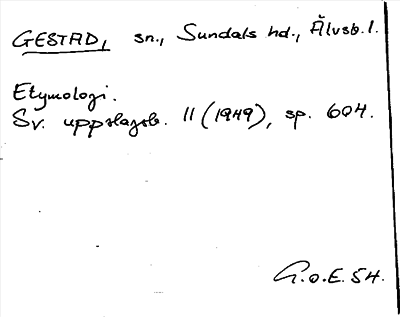 GESTAD, sn., Sundals hd., Älvsb.l.
Etymologi.
Sv. uppslagsb. 11 (1949), sp. 604.
G.o.E. 54.